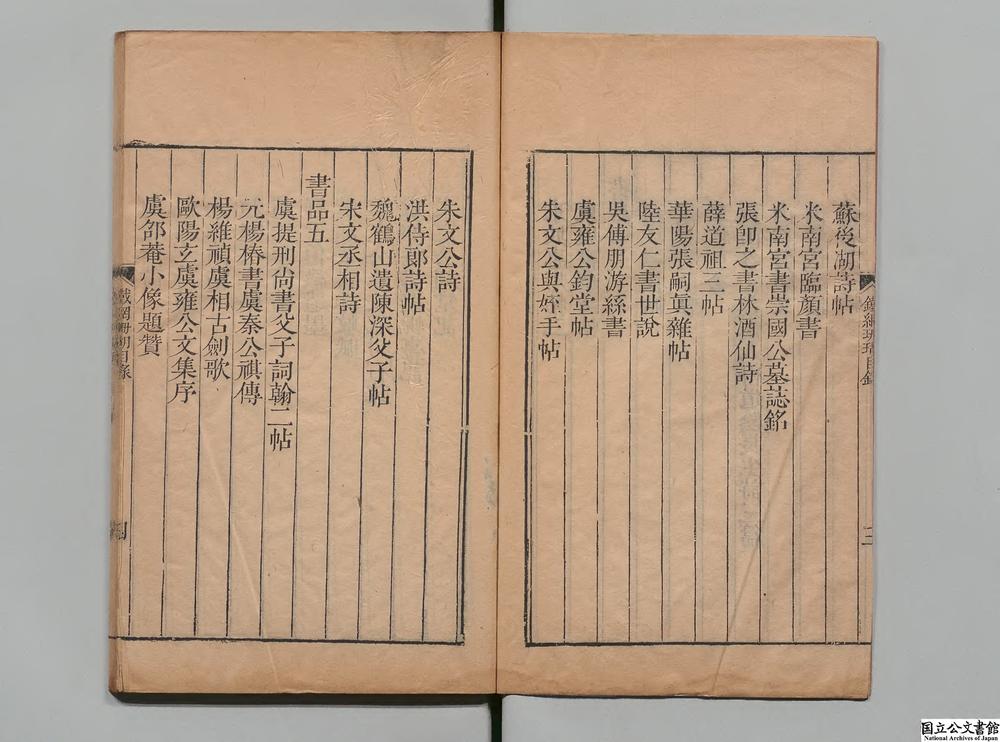 蘇後湖詩帖
米南宮臨顏書
米南宮書崇國公墓誌銘
張卽之書林酒仙詩
薛道祖三帖
華陽張嗣真雞帖
陸友仁書世說
吳傅朋游絲書
虞雍公鈞堂帖
朱文公與姪手帖
朱文公詩
洪侍郎詩帖
魏鶴山遺陳深父子帖
宋文丞相詩
書品五
虞提刑尚書父子詞翰二帖
元楊椿書虞秦公祺傳
楊維禎虞相古劍歌
歐陽玄虞雍公文集序
虞邵菴小像題贊
鐵網珊瑚目錄
三
国立公文書館
National Archives of Japan